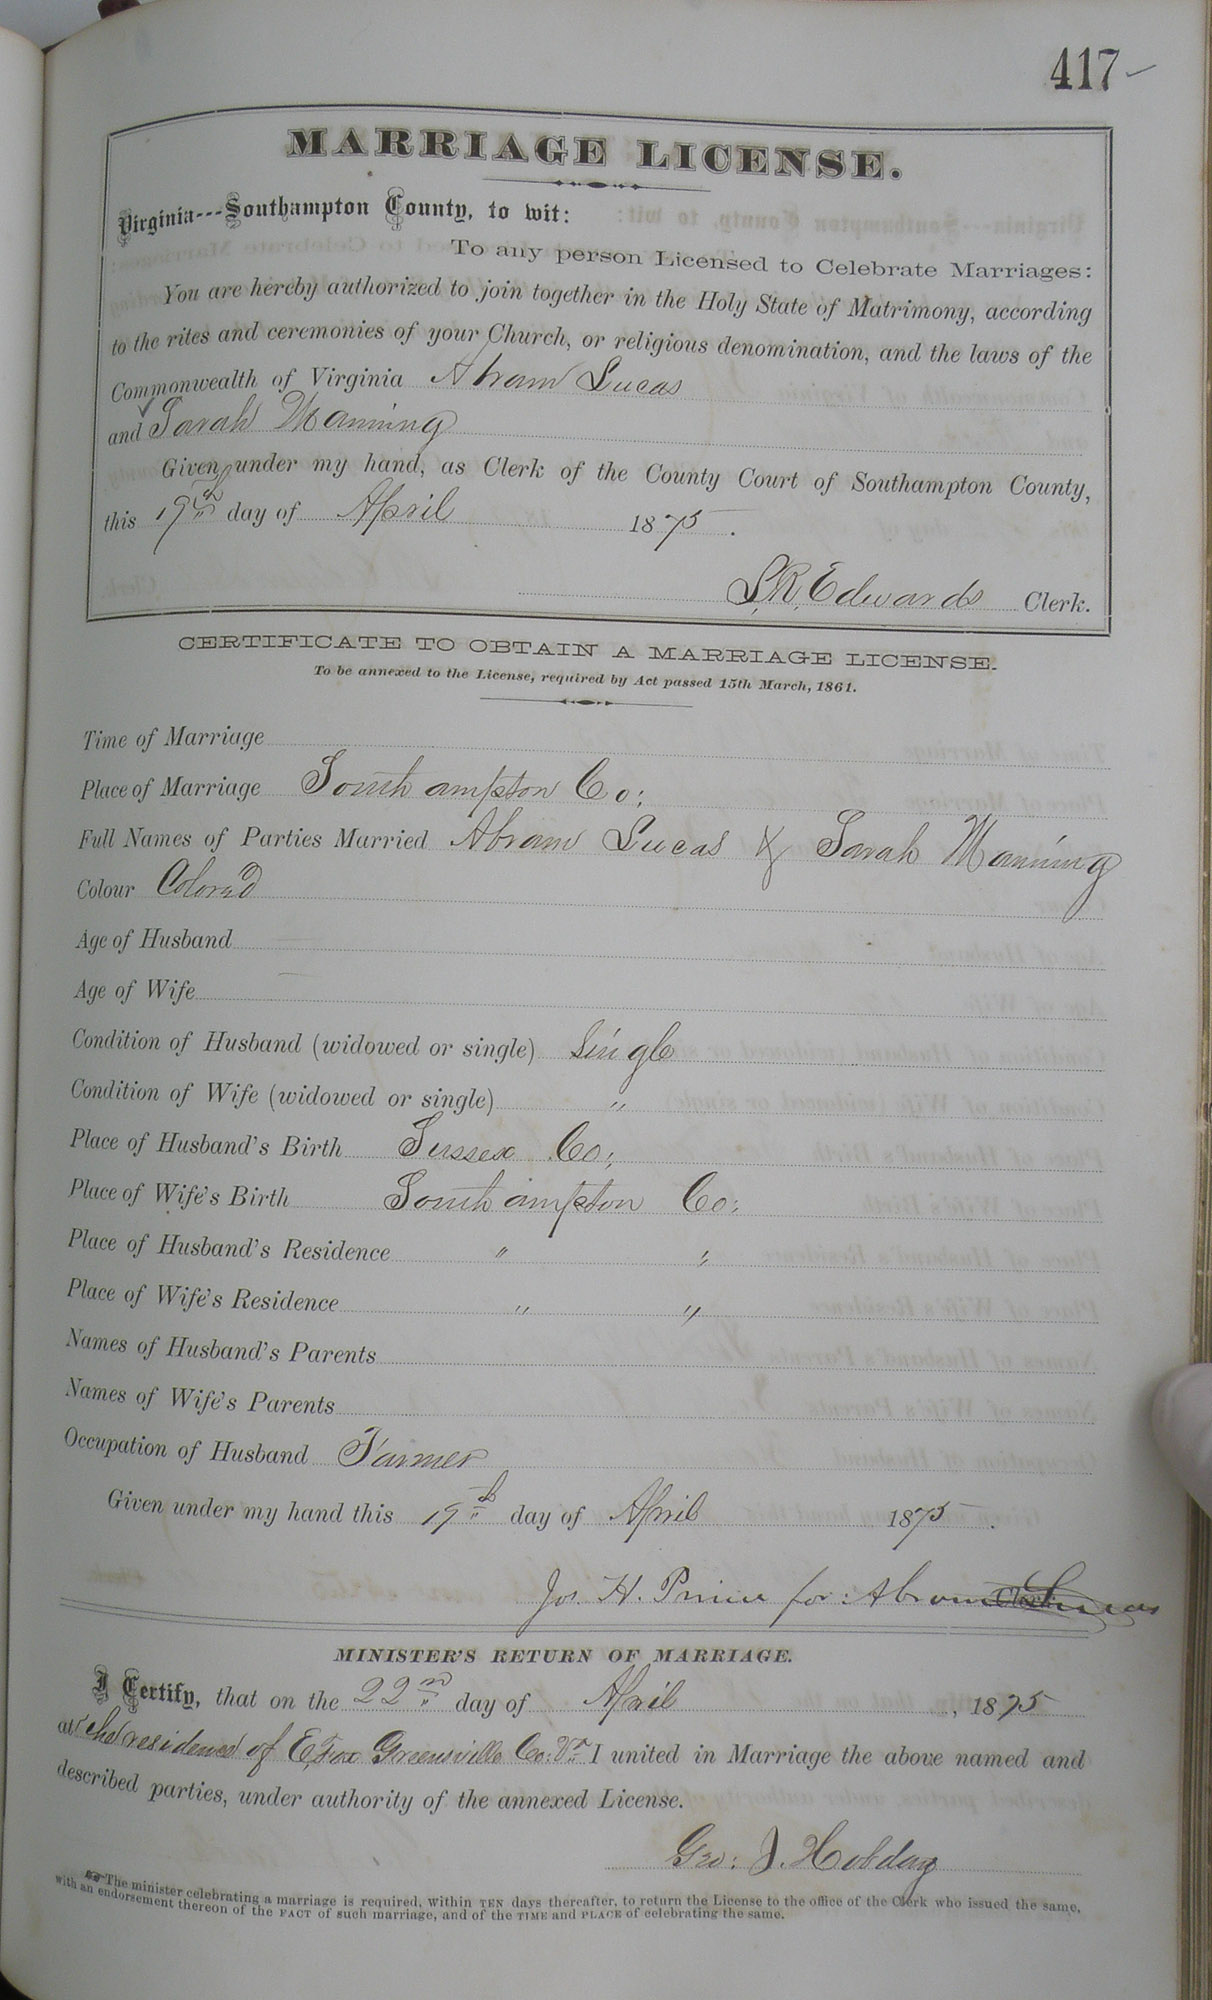 417
MARRIAGE LICENSE.
Virginia---Southampton County, to wit:
To any person Licensed to Celebrate Marriages:
You are hereby authorized to join together in the Holy State of Matrimony, according
to the rites and ceremonies of your Church, or religious denomination, and the laws of the
Commonwealth of Virginia Abram Lucas
and Sarah Manning
Given under my hand, as Clerk of the County Court of Southampton County,
this 19th day of April 1875.
L.R. Edwards Clerk.
CERTIFICATE TO OBTAIN A MARRIAGE LICENSE.
To be annexed to the License, required by Act passed 15th March, 1861.
Time of Marriage
Place of Marriage Southampton Co:
Full Names of Parties Married Abram Lucas & Sarah Manning
Colour Colored
Age of Husband
Age of Wife
Condition of Husband (widowed or single) Single
Condition of Wife (widowed or single) "
Place of Husband's Birth Sussex Co:
Place of Wife's Birth Southampton Co:
Place of Husband's Residence " "
Place of Wife's Residence " "
Names of Husband's Parents
Names of Wife's Parents
Occupation of Husband Farmer
Given under my hand this 19th day of April 1875.
Jos. H. Prince for: Abram Lucas
MINISTER'S RETURN OF MARRIAGE.
I Certify, that on the 22nd day of April, 1875
at the residence of E. Fox Greensville Co: Va I united in Marriage the above named and
described parties, under authority of the annexed License.
Geo: J. Hobday
The minister celebrating a marriage is required, within TEN days thereafter, to return the License to the office of the Clerk who issued the same,
with an endorsement thereon of the FACT of such marriage, and of the TIME and PLACE of celebrating the same.